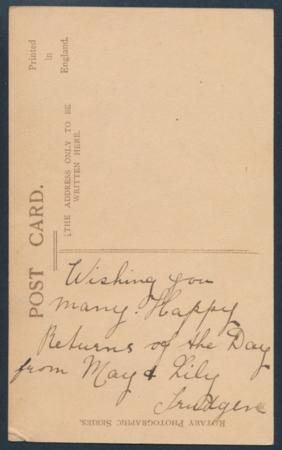 POST CARD.
Printed
in
England.
(THE ADDRESS ONLY TO BE
WRITTEN HERE.
Wishing you
many. Happy
Returns of the Day
from May & Lily
Trudgen
ROTARY PHOTOGRAPHIC SERIES.